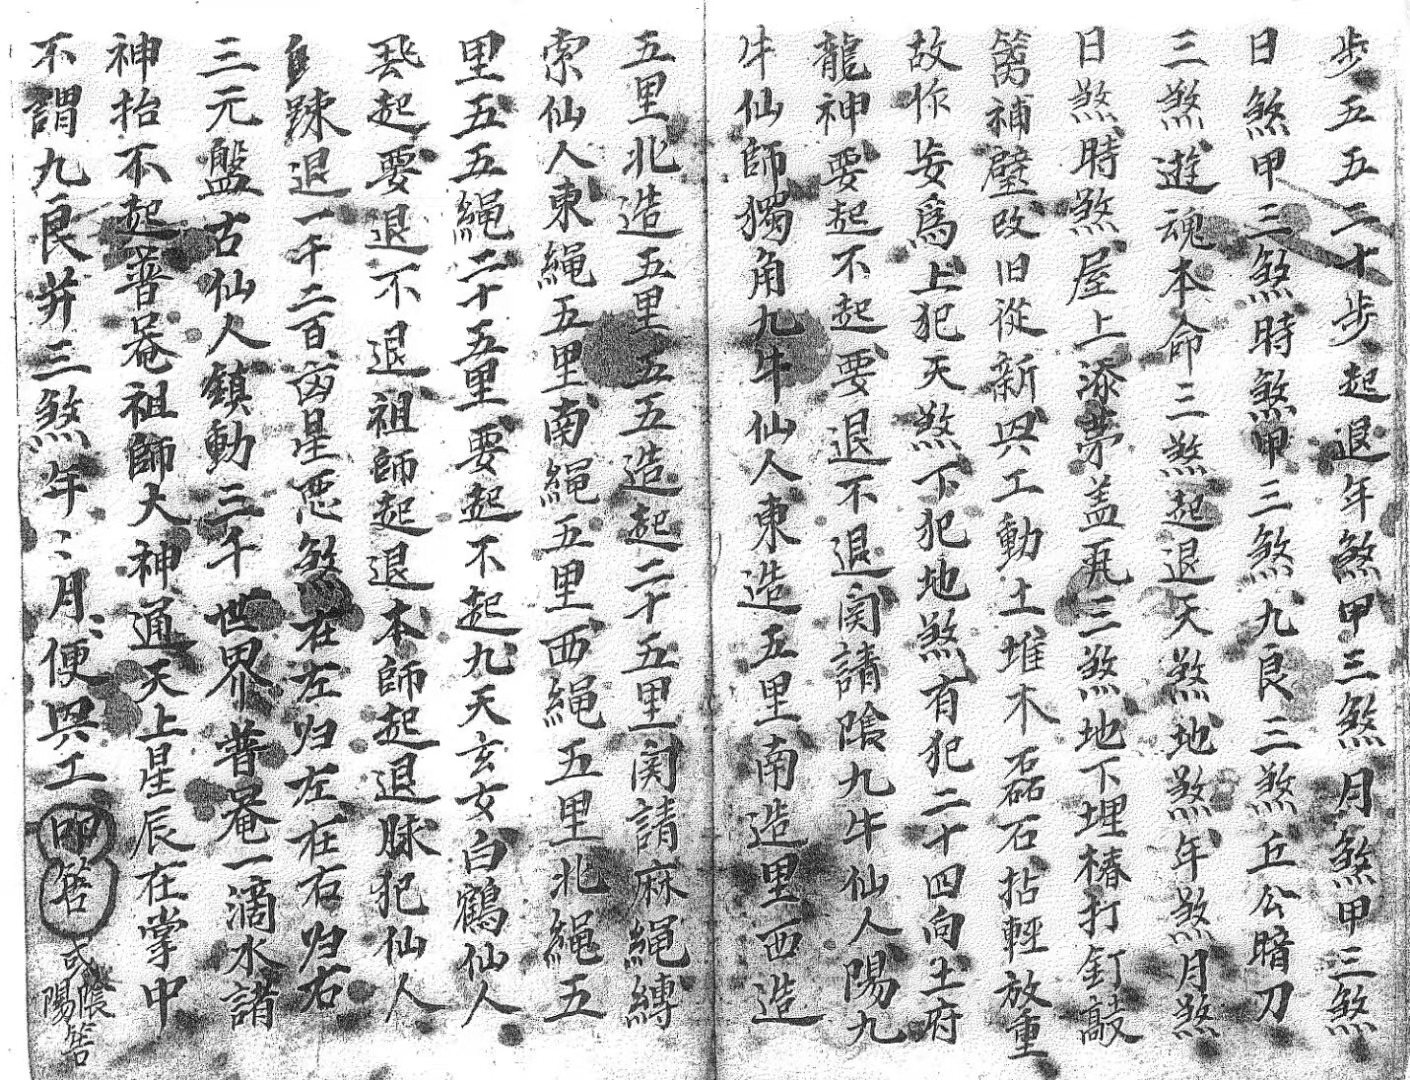 步五五二十步起退年煞甲三煞月煞甲三煞
日煞甲三煞時煞甲三煞九良三煞丘公暗刀
三煞遊魂本命三煞起退天煞地煞年煞月煞
日煞時煞屋上添茅盖瓦三煞地下埋樁打釘敲
篱補壁改旧從新興工動土堆木磊石拈輕放重
故作妄爲上犯天煞下犯地煞有犯二十四向土府
龍神要起不起要退不退関請陰九牛仙人陽九
牛仙師獨角九牛仙人東造五里南造里西造
五里北造五里五五造起二十五里関請麻繩縛
索仙人東繩五里南繩五里西繩五里北繩五
里五五繩二十五里要起不起九天玄女白鶴仙人
起要退不退祖師起退本師起退脉犯仙人
退一千二百凶星恶煞在左归左在右归右
三元盤古仙人鎮動三千世界普菴一滴水諸
神抬不起普菴祖師大神通天上星辰在掌中
不謂九良并三煞年〻月〻便興工
陰陽筶